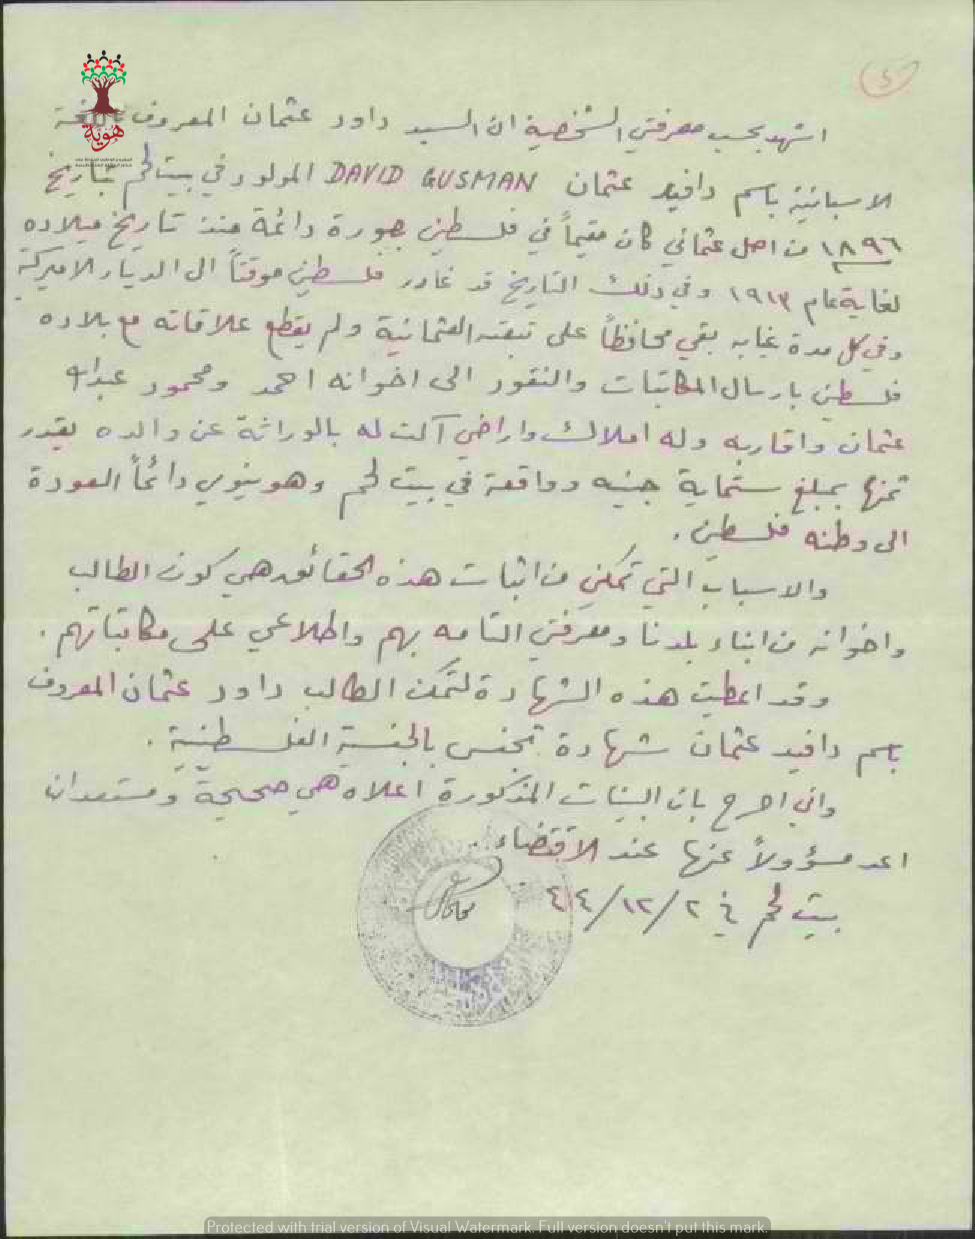 اشهد بحسب معرفتي الشخصية ان السيد داود عثمان المعروف باللغة
الاسبانية باسم دافيد عثمان DAVID GUSMAN المولود في بيت لحم بتاريخ
١٨٩٦ من اصل عثماني كان مقيماً في فلسطين بصورة دائمة منذ تاريخ ميلاده
لغاية عام ١٩١٣ وفي ذلك التاريخ قد غادر فلسطين موقتاً الى الديار الاميركية
وفي كل مدة غيابه بقي محافظاً على تبعته العثمانية ولم يقطع علاقاته مع بلاده
فلسطين بارسال المكاتبات والنقود الى اخوانه احمد ومحمود عبدالله
عثمان واقاربه وله املاك واراضي آلت له بالوراثة عن والده يقدر
ثمنها بمبلغ ستماية جنيه وواقعة في بيت لحم وهو ينوي دائماً العودة
الى وطنه فلسطين.
والاسباب التي تمكني من اثبات هذه الحقائق هي كون الطالب
واخوانه من ابناء بلدنا ومعرفتي التامه بهم واطلاعي على مكاتباتهم.
وقد اعطيت هذه الشهادة لتمكن الطالب داود عثمان المعروف
باسم دافيد عثمان شهادة تجنس بالجنسية الفلسطينية.
واني اصرح بان البينات المذكورة اعلاه هي صحيحة ومستعد ان
اعد مسؤولاً عنها عند الاقتضاء.
بيت لحم في ٢/١٢/٤٤
هوية
Protected with trial version of Visual Watermark. Full version doesn't put this mark.